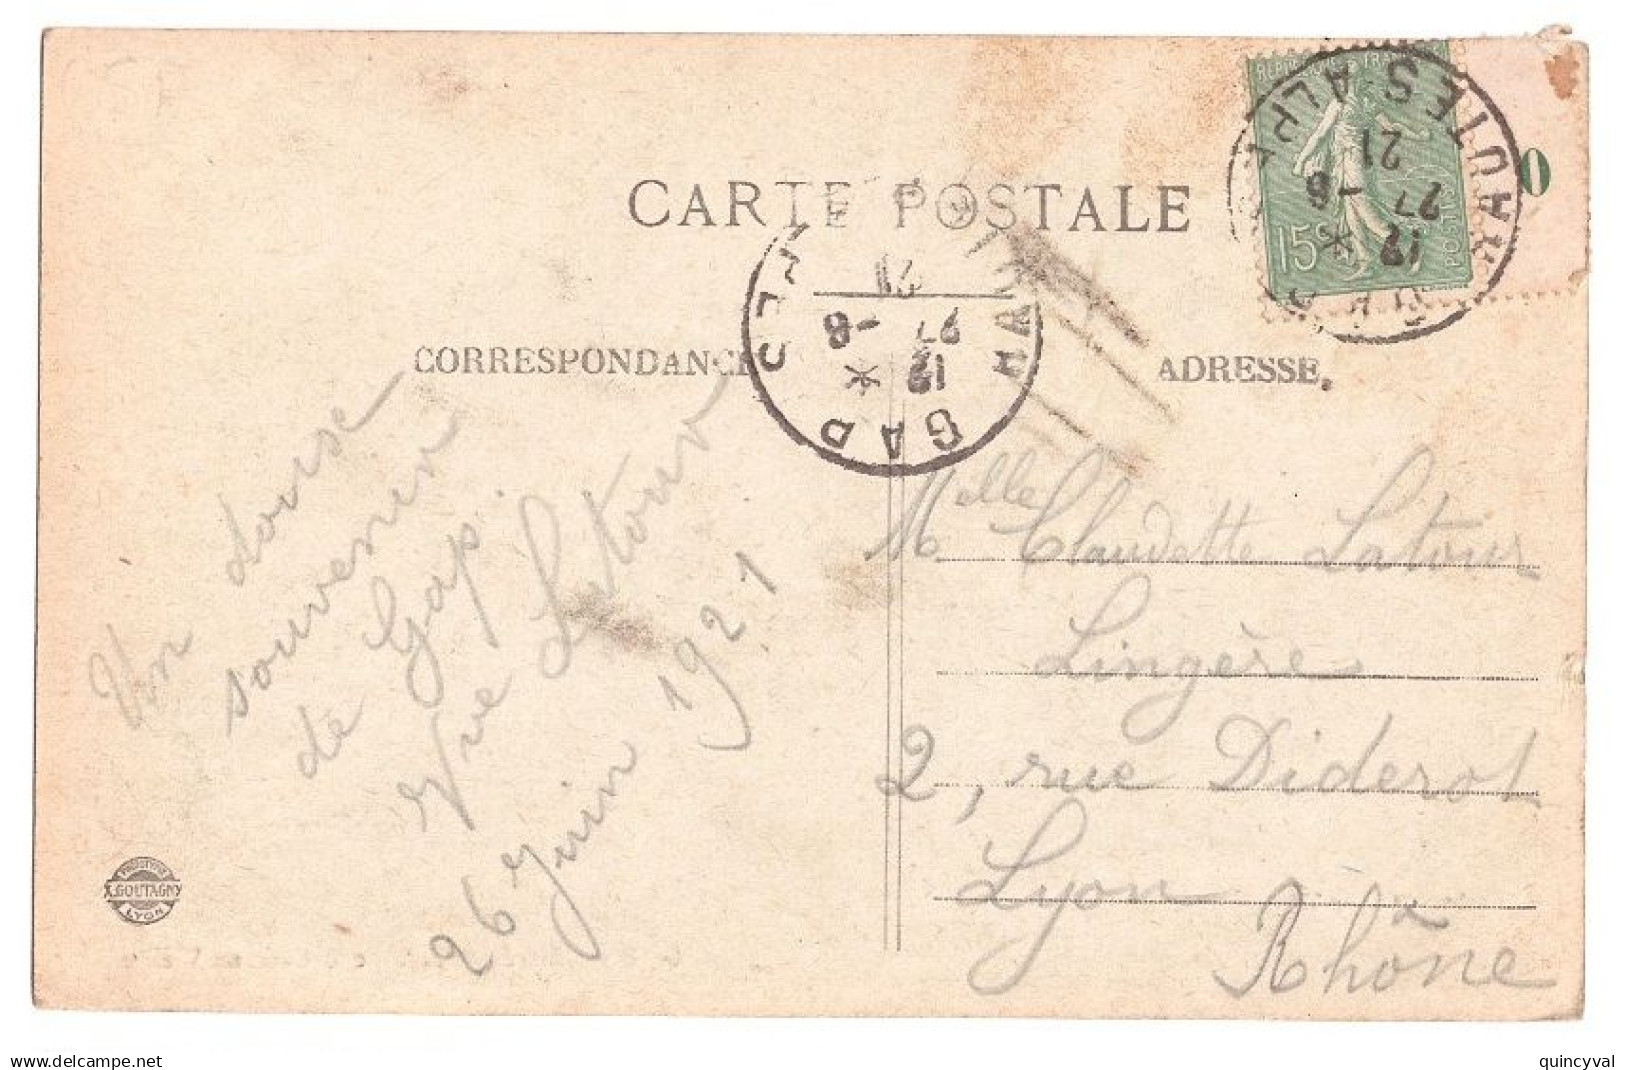 CARTE POSTALE
CORRESPONDANCE
ADRESSE.
REPUBLIQUE FRA
15c
POSTES
HAUTES ALPES
12 *
27 -6
21
0
GAP
12 *
27 -6
21
Un douse
souvenir
de Gap.
Vve Latour
26 Juin 1921
Melle Claudette Latour
Lingère
2, rue Diderot
Lyon
Rhône
PHOTOTYPIE
A.GOUTAGNY
LYON
delcampe.net
quincyval